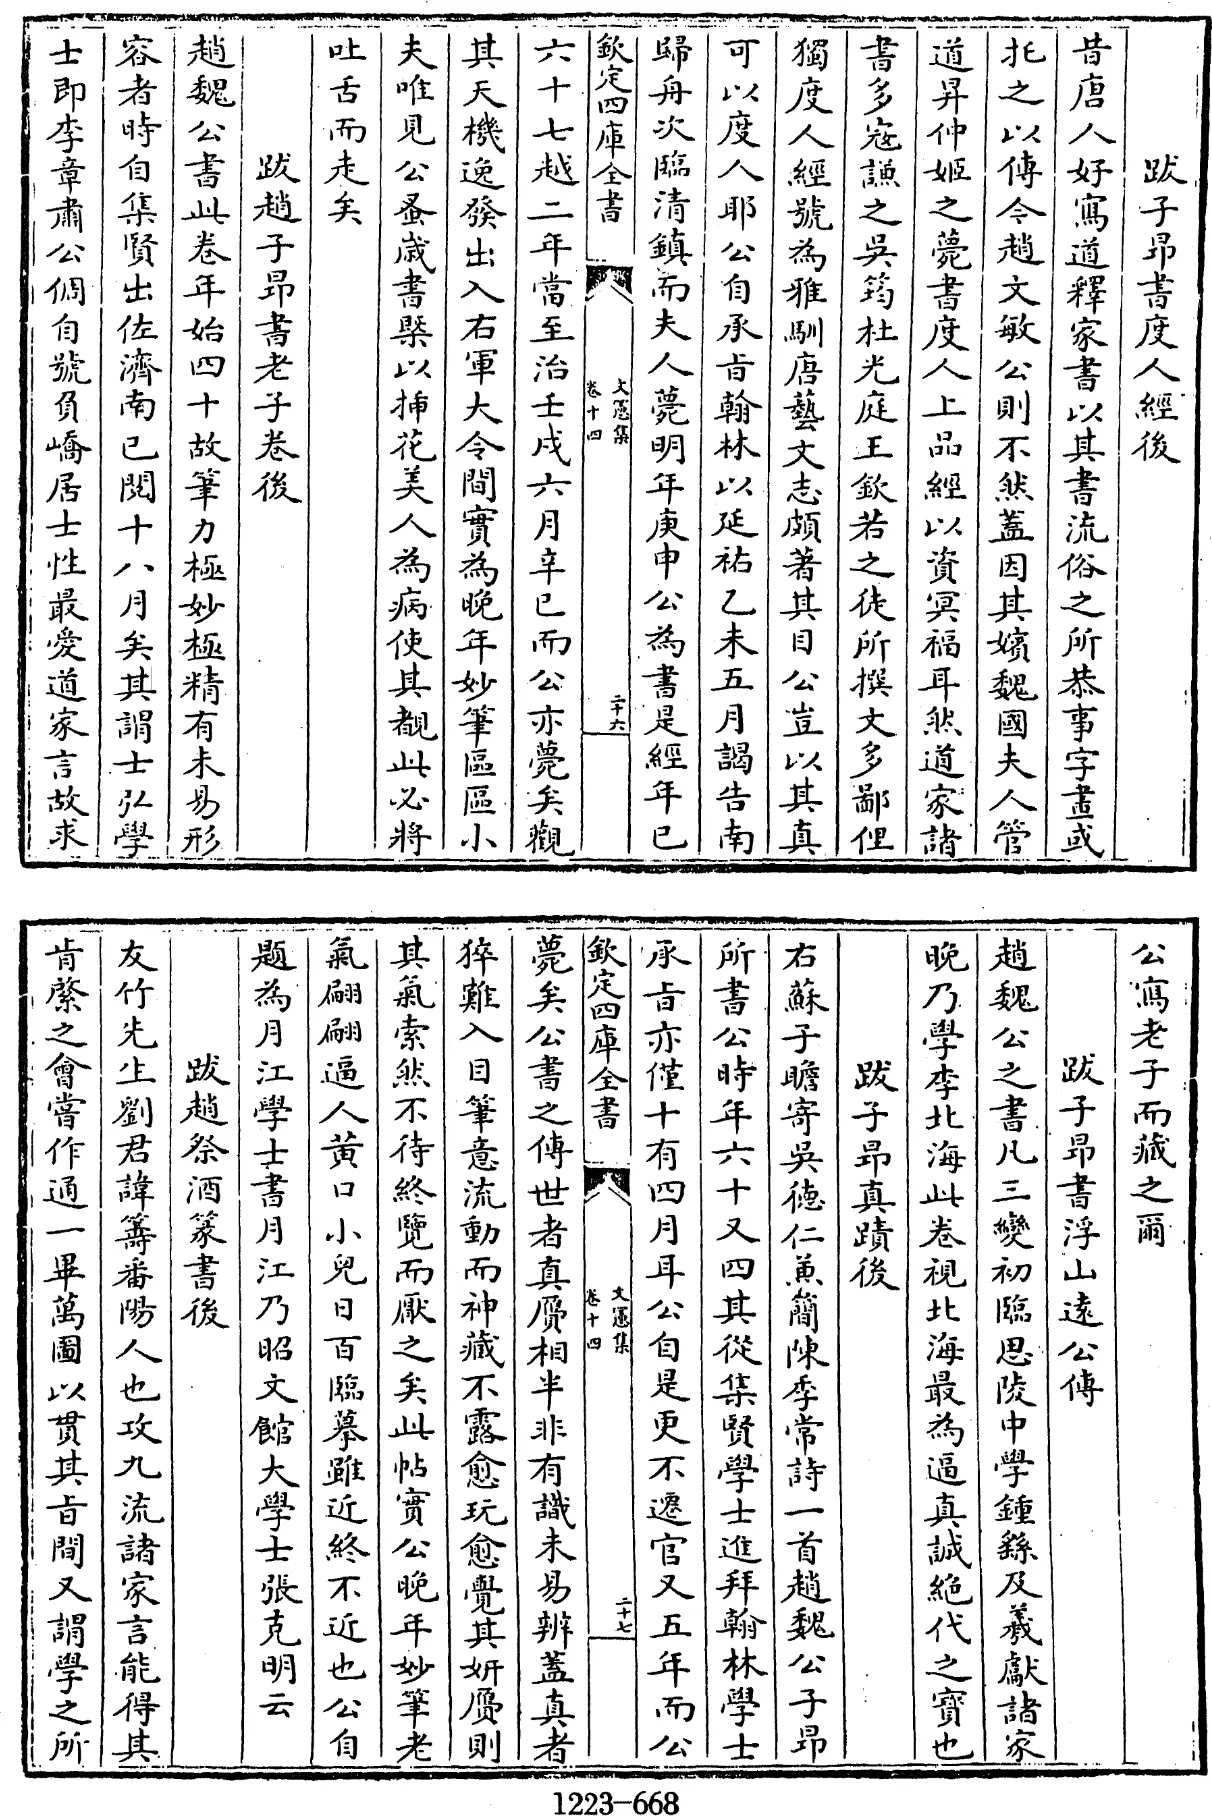 跋子昻書度人經後
昔唐人好寫道釋家書以其書流俗之所恭事字畫或
托之以傳今趙文敏公則不然蓋因其嬪魏國夫人管
道昇仲姬之薨書度人上品經以資冥福耳然道家諸
書多宼謙之吳筠杜光庭王欽若之徒所撰文多鄙俚
獨度人經號為雅馴唐藝文志頗著其目公豈以其真
可以度人耶公自承㫖翰林以延祐乙未五月謁告南
歸舟次臨清鎮而夫人薨明年庚申公為書是經年已
欽定四庫全書
文憲集
卷十四
二十六
六十七越二年當至治壬戌六月辛巳而公亦薨矣觀
其天機逸發出入右軍大令間實為晚年妙筆區區小
夫唯見公蚤嵗書槩以揷花美人為病使其覩此必將
吐舌而走矣
跋趙子昻書老子卷後
趙魏公書此卷年始四十故筆力極妙極精有未易形
容者時自集賢出佐濟南已閱十八月矣其謂士弘學
士即李章肅公倜自號負嶠居士性最愛道家言故求
公寫老子而藏之爾
跋子昻書浮山逺公傳
趙魏公之書凡三變初臨思陵中學鍾繇及羲獻諸家
晚乃學李北海此卷視北海最為逼真誠絶代之寳也
跋子昻真蹟後
右蘇子瞻寄吳徳仁兼簡陳季常詩一首趙魏公子昻
所書公時年六十又四其從集賢學士進拜翰林學士
承㫖亦僅十有四月耳公自是更不遷官又五年而公
欽定四庫全書
文憲集
卷十四
二十七
薨矣公書之傳世者真贋相半非有識未易辨蓋真者
猝難入目筆意流動而神藏不露愈玩愈覺其妍贋則
其氣索然不待終覽而厭之矣此帖實公晚年妙筆老
氣翩翩逼人黄口小兒日百臨摹雖近終不近也公自
題為月江學士書月江乃昭文館大學士張克明云
跋趙祭酒篆書後
友竹先生劉君諱籌番陽人也攻九流諸家言能得其
肯綮之會嘗作通一畢萬圖以贯其㫖間又謂學之所
1223-668